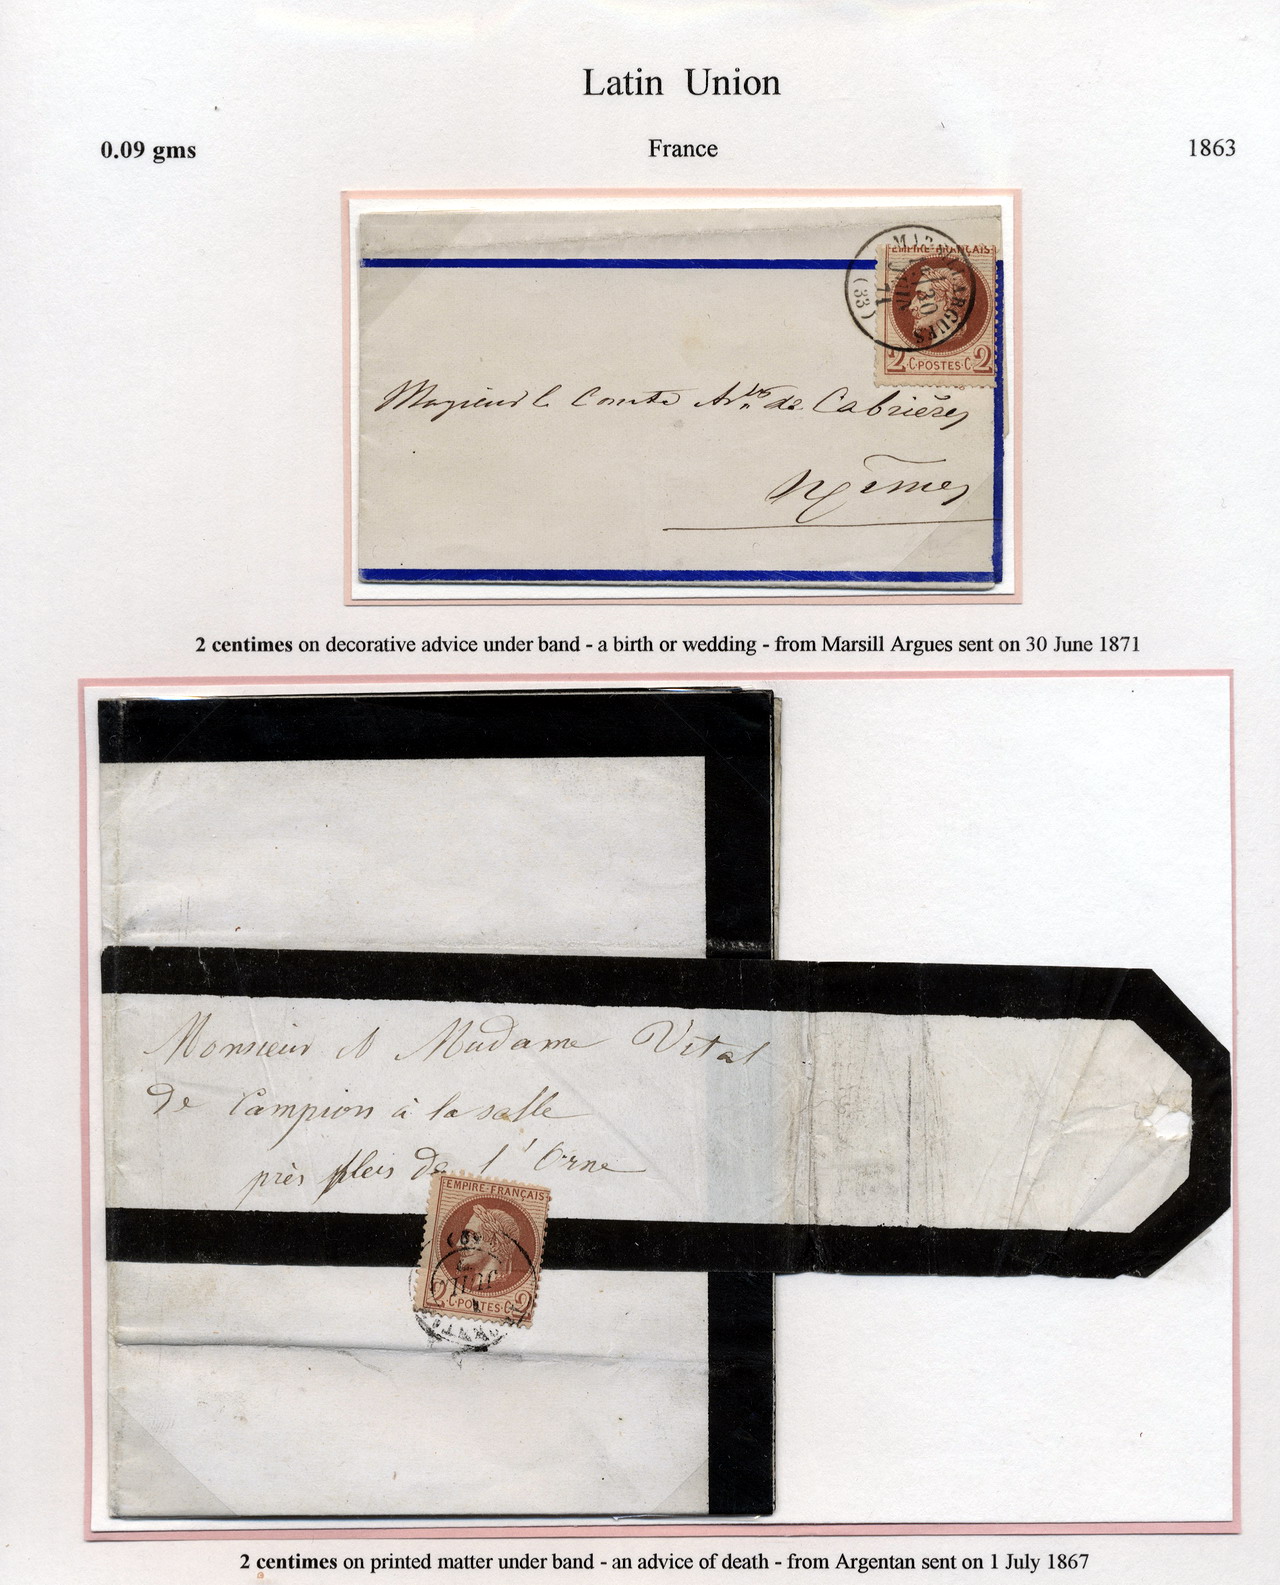 Latin Union
0.09 gms
France
1863
EMPIRE-FRANÇAIS
30
JUIN
71
(33)
2 C·POSTES·C 2
Monsieur le Comte Art de Cabrières
Nîmes
2 centimes on decorative advice under band - a birth or wedding - from Marsill Argues sent on 30 June 1871
Monsieur & Madame Vital
De Campion à la salle
près flers De l'Orne
EMPIRE·FRANÇAIS
JUIL
2 C·POSTES·C 2
2 centimes on printed matter under band - an advice of death - from Argentan sent on 1 July 1867